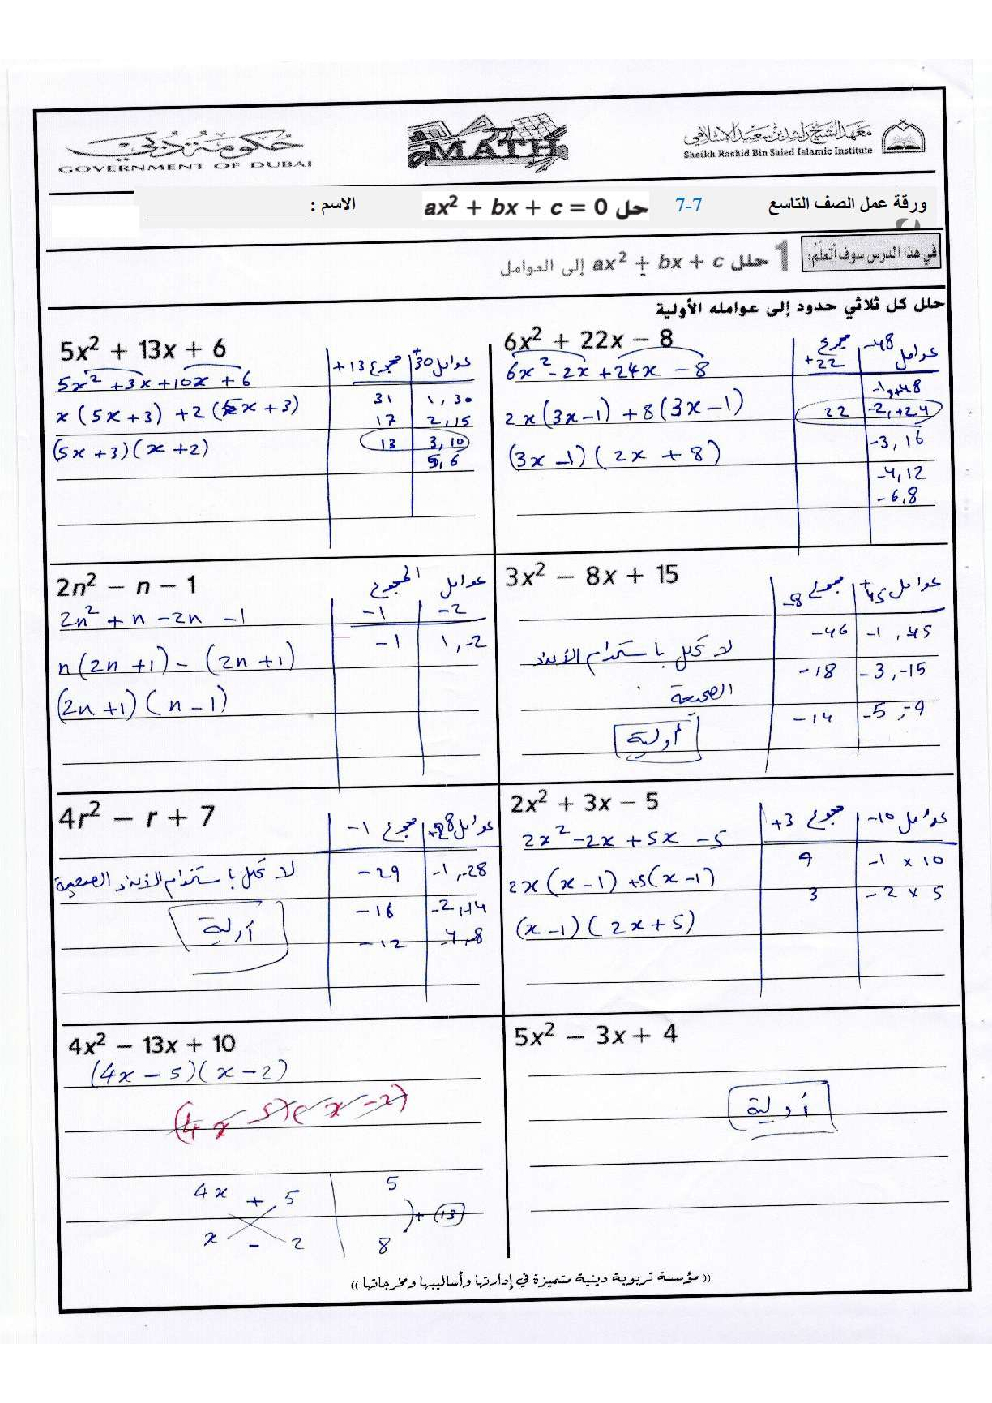 حكومة دبي
GOVERNMENT OF DUBAI
MATH
معهد الشيخ راشد بن سعيد الإسلامي
Sheikh Rashid Bin Saied Islamic Institute
ورقة عمل الصف التاسع 7-7 حل ax² + bx + c = 0 الاسم :
في هذا الدرس سوف أتعلم: 1 حلل ax² + bx + c إلى العوامل
حلل كل ثلاثي حدود إلى عوامله الأولية
6x² + 22x − 8
6x² − 2x + 24x − 8
2x(3x−1) + 8(3x−1)
(3x−1)(2x + 8)
مجموع +22 عوامل −48
−1, +48
22 −2, +24
−3, 16
−4, 12
−6, 8
5x² + 13x + 6
5x² + 3x + 10x + 6
x(5x+3) + 2(5x+3)
(5x+3)(x+2)
مجموع +13 عوامل +30
31 1, 30
17 2, 15
13 3, 10
5, 6
3x² − 8x + 15
لا تحلل باستخدام الأعداد
الصحيحة
أولية
مجموع −8 عوامل +45
−46 −1, 45
−18 −3, −15
−14 −5, −9
2n² − n − 1
2n² + n − 2n − 1
n(2n+1) − (2n+1)
(2n+1)(n−1)
المجموع عوامل
−1 −2
−1 1, −2
2x² + 3x − 5
2x² − 2x + 5x − 5
2x(x−1) + 5(x−1)
(x−1)(2x+5)
مجموع +3 عوامل −10
9 −1 × 10
3 −2 × 5
4r² − r + 7
لا تحلل باستخدام الأعداد الصحيحة
أولية
مجموع −1 عوامل +28
−29 −1, −28
−16 −2, +14
−12
5x² − 3x + 4
أولية
4x² − 13x + 10
(4x − 5)(x − 2)
(4x 5)(x − 2)
4x + 5 5
x − 2 8
+ (13)
(( مؤسسة تربوية دينية متميزة في إدارتها وأساليبها ومخرجاتها ))